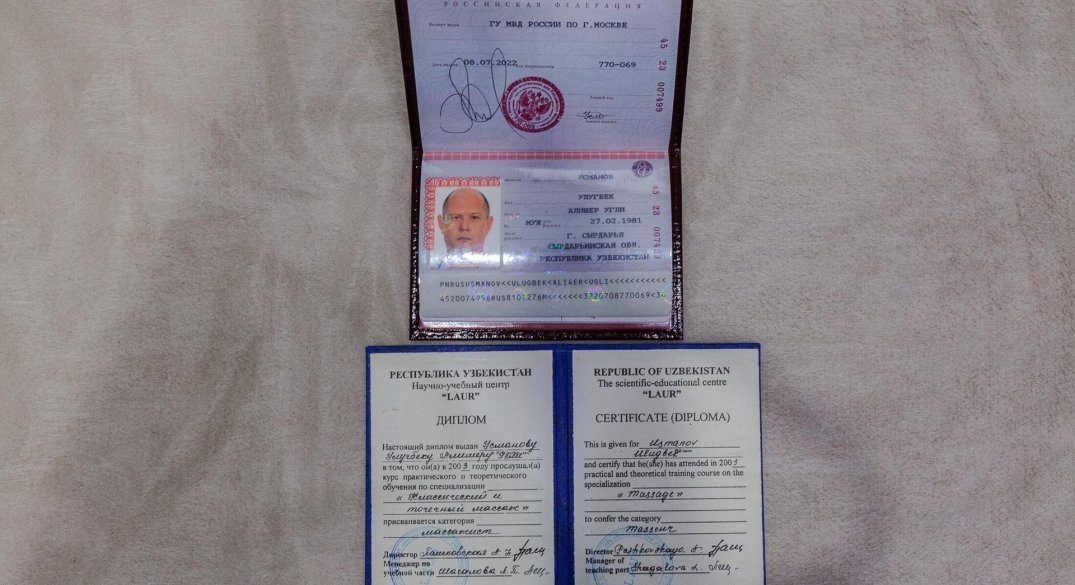 РОССИЙСКАЯ ФЕДЕРАЦИЯ
Паспорт выдан ГУ МВД РОССИИ ПО Г.МОСКВЕ
Дата выдачи 08.07.2022 Код подразделения 770-069
Личный код
Личная подпись
45 23 007499
УСМАНОВ
УЛУГБЕК
АЛИШЕР УГЛИ
МУЖ 27.02.1981
Г. СЫРДАРЬЯ
СЫРДАРЬИНСКАЯ ОБЛ.
РЕСПУБЛИКА УЗБЕКИСТАН
45 23 007499
PNRUSUSMANOV<<ULUGBEK<ALI4ER<UGLI<<<<<<<<<<<
РЕСПУБЛИКА УЗБЕКИСТАН
Научно-учебный центр
“LAUR”
ДИПЛОМ
Настоящий диплом выдан Усманову
Улугбеку Алишеру
в том, что он(а) в 2003 году прослушал(а)
курс практического и теоретического
обучения по специализации
« Классический и
точечный массаж »
присваивается категория
массажист
Директор Пашковская
Менеджер по
учебной части Шагалова
REPUBLIC OF UZBEKISTAN
The scientific-educational centre
“LAUR”
CERTIFICATE (DIPLOMA)
This is given for Uzmanov
Ulugbek
and certify that he(she) has attended in 2003
practical and theoretical training course on the
specialization
« Massage »
to confer the category
masseur
Director Pashkovskaya. A
Manager of
teaching part Shagalova